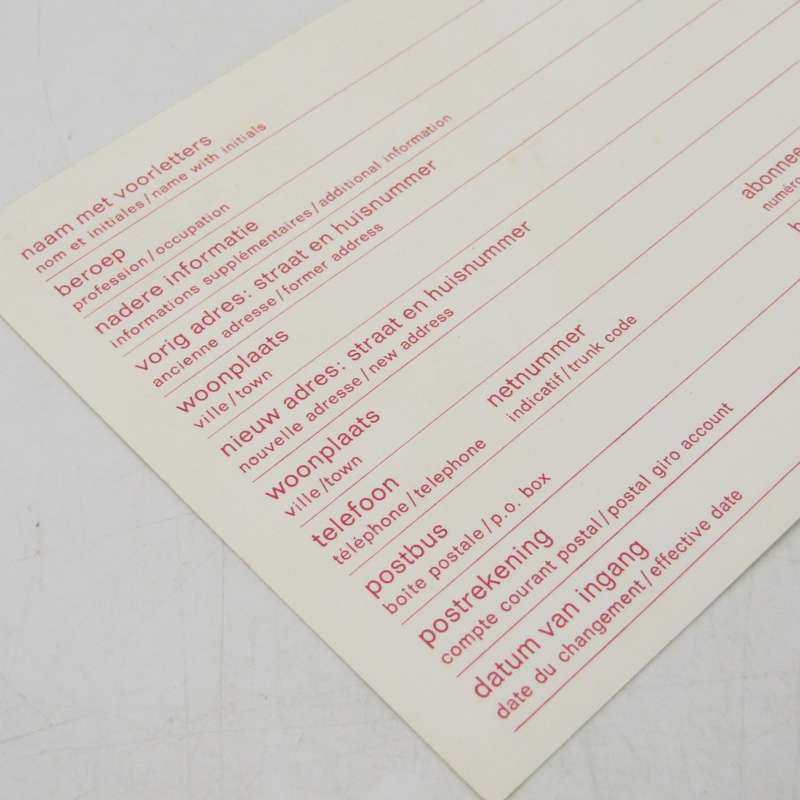 naam met voorletters
nom et initiales/name with initials
beroep
profession/occupation
nadere informatie
informations supplémentaires/additional information
vorig adres: straat en huisnummer
ancienne adresse/former address
woonplaats
ville/town
nieuw adres: straat en huisnummer
nouvelle adresse/new address
woonplaats
ville/town
telefoon netnummer abonnee
téléphone/telephone indicatif/trunk code numéro
postbus
boite postale/p.o. box
postrekening
compte courant postal/postal giro account
datum van ingang
date du changement/effective date